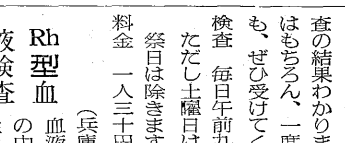 査の結果わかりま
はもちろん、一度
も、ぜひ受けてく
検査 毎日午前九
ただし土曜日は
祭日は除きます
料金 一人三十円
(兵庫
Rh型血
液検査
血液
の中